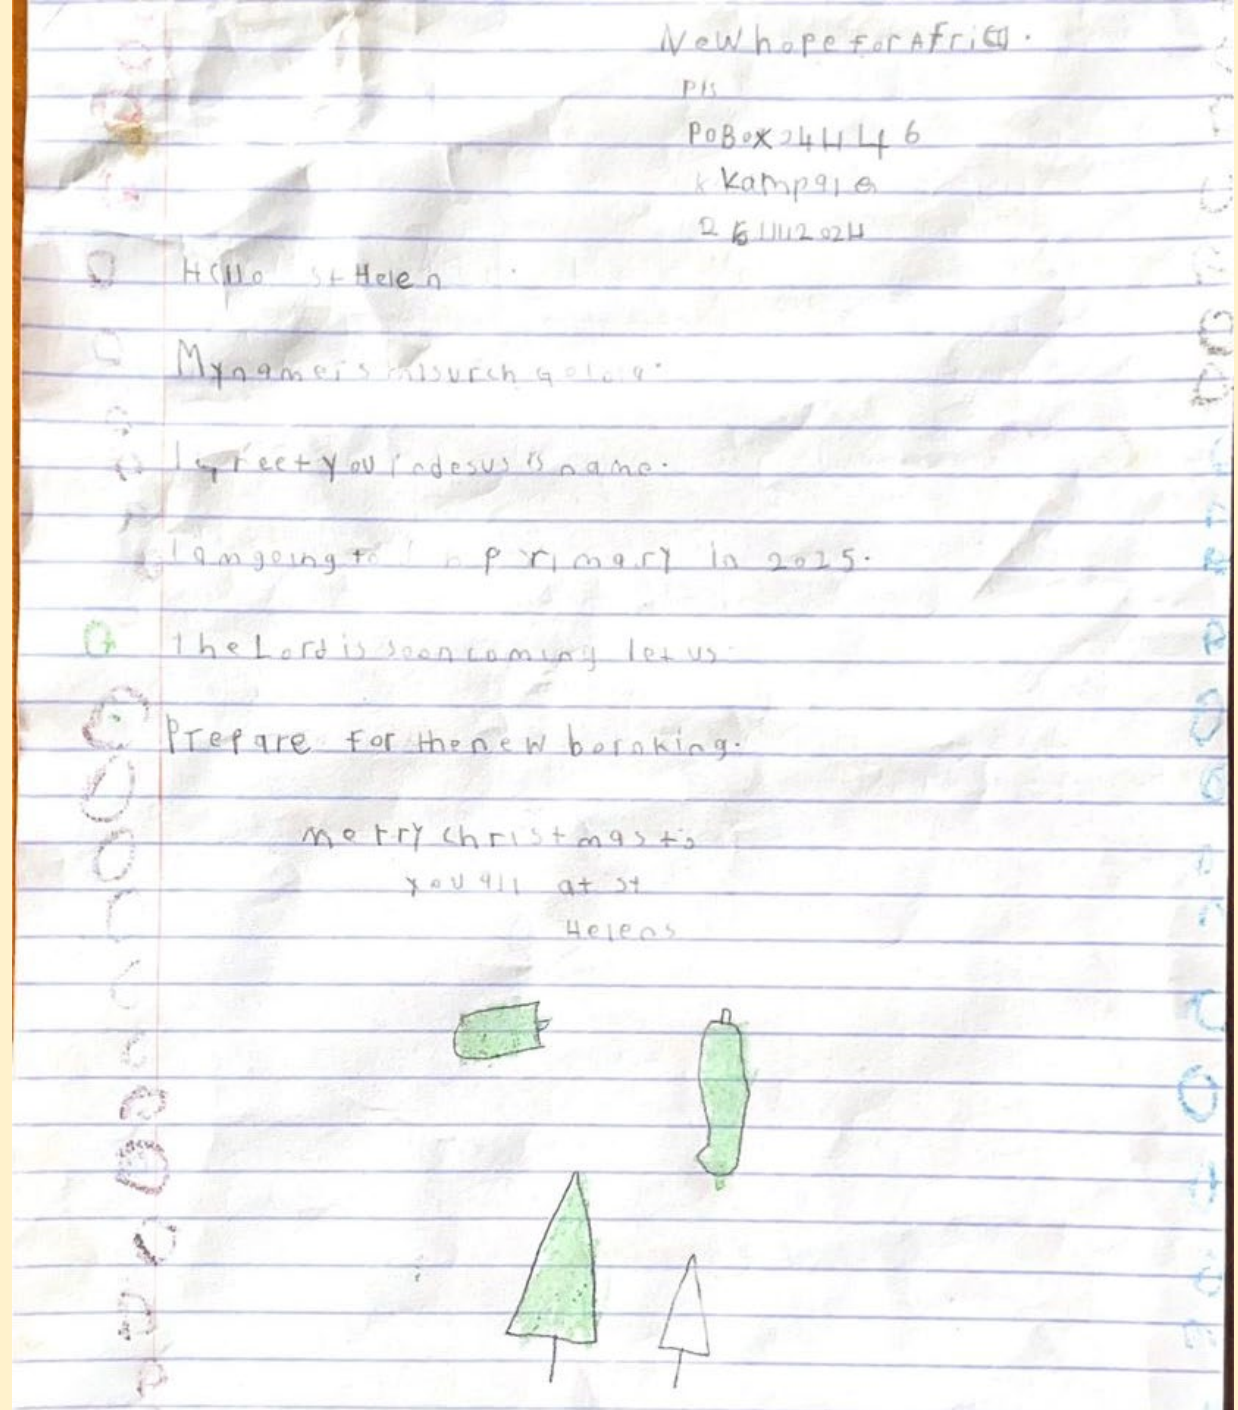 New hope for Africa.
P/S
PO Box 24446
Kampala
26/11/2024
Hello st Helen
My name is
I greet you in Jesus is name.
I am going to in primary in 2025.
The Lord is soon coming let us
Prepare for the new born king.
merry christmas to
you all at st
Helens